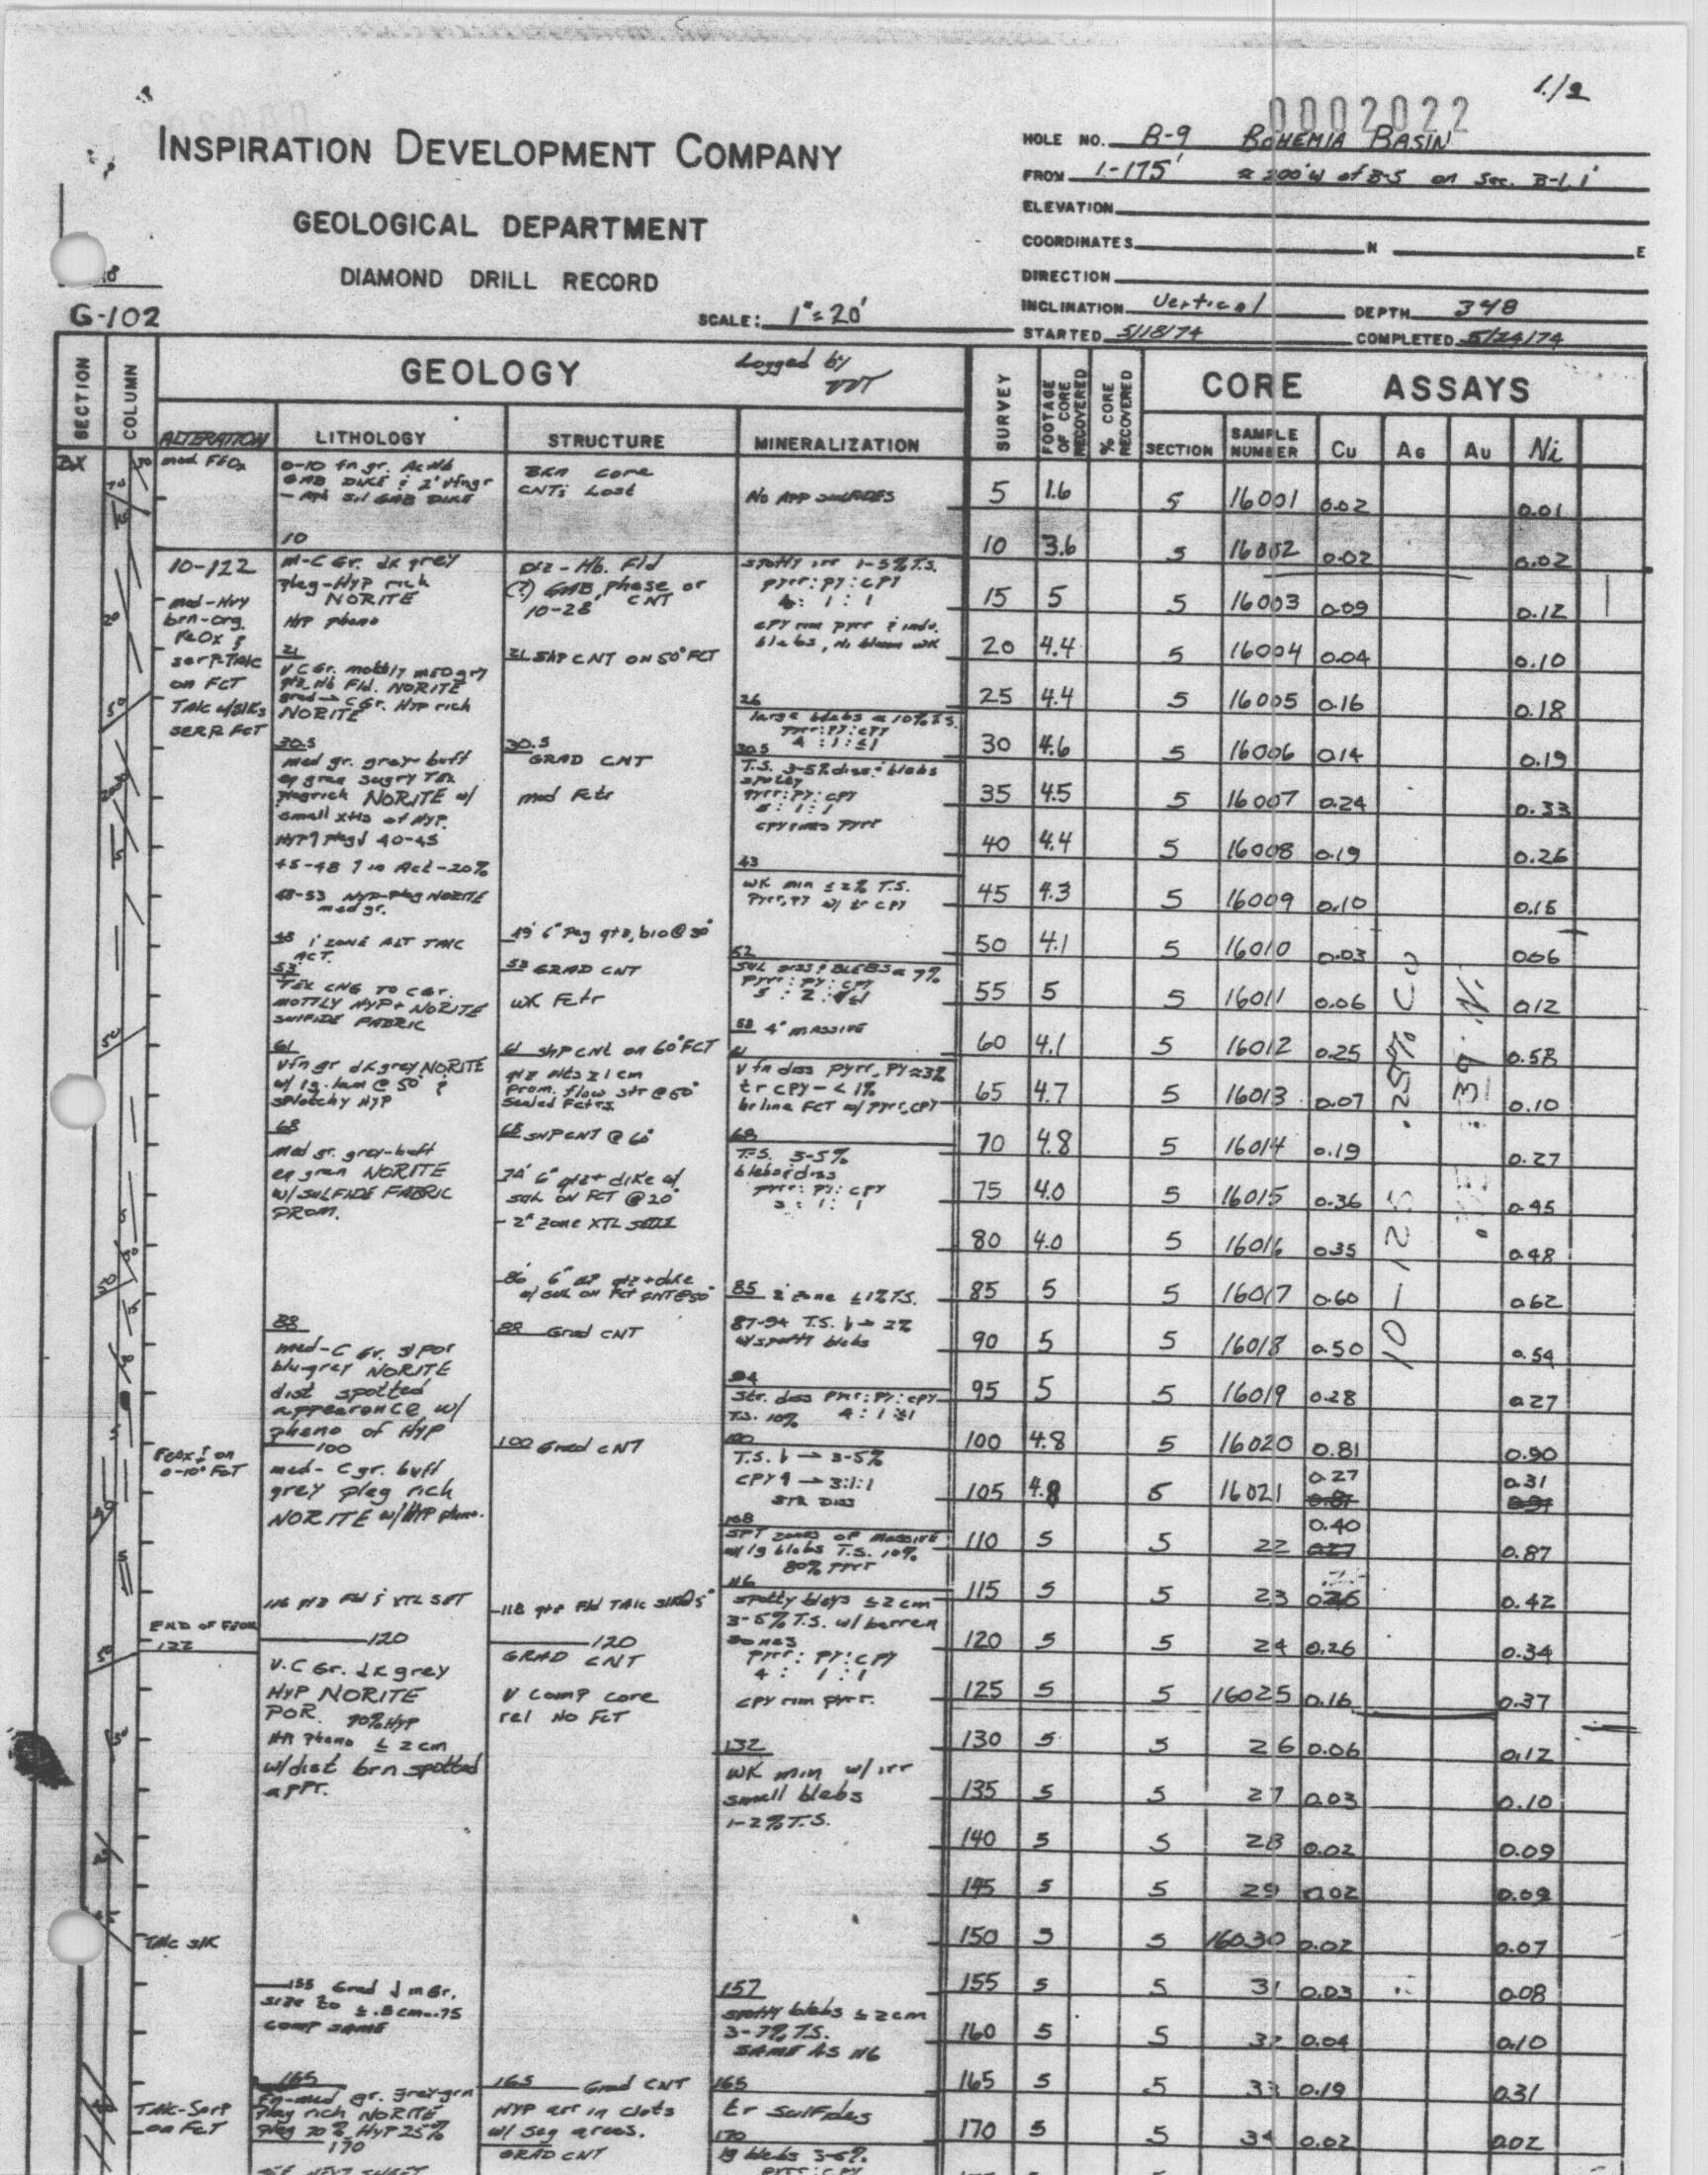 1/2
0002022
INSPIRATION DEVELOPMENT COMPANY
GEOLOGICAL DEPARTMENT
DIAMOND DRILL RECORD
G-102
SCALE: 1"=20'
HOLE NO. B-9 BOHEMIA BASIN
FROM 1-175' ≈ 200'W of B-5 on Sec. B-1.1'
ELEVATION
COORDINATES N E
DIRECTION
INCLINATION Vertical DEPTH 348
STARTED 5/18/74 COMPLETED 5/24/74
SECTION
COLUMN
GEOLOGY
Logged by
ALTERATION
LITHOLOGY
STRUCTURE
MINERALIZATION
SURVEY
FOOTAGE OF CORE RECOVERED
% CORE RECOVERED
CORE ASSAYS
SECTION
SAMPLE NUMBER
Cu
AG
AU
Ni
BX
mod FeOx
10-122
mod-Hvy
brn-org.
FeOx &
serp-TALC
on FCT
TALC w/SLKs
SERP FCT
on
0-10° FCT
END OF FEOX
122
TALC SLK
TALC-Serp
on FCT
0-10 fn gr.
GAB DIKE & 2' vfngr
GAB DIKE
10
m-C Gr. dk grey
plag-HYP rich
NORITE
HYP pheno
21
V C Gr. mottly med gry
qtz Hb Fld. NORITE
grad → C Gr. HYP rich
NORITE
30.5
med gr. grey-buff
eq gran sugry Tex
plagrich NORITE w/
small xtls of HYP.
HYP↑ plag↓ 40-45
45-48 ↑ in Act-20%
48-53 HYP-Plag NORITE
med gr.
48 1' ZONE ALT TALC
ACT.
53
TEX CNG TO C Gr.
MOTTLY HYP+ NORITE
SULFIDE FABRIC
61
Vfn gr dk grey NORITE
w/ lg. lam @ 50° &
splotchy HYP
68
med gr. grey-buff
eq gran NORITE
w/ SULFIDE FABRIC
PROM.
88
med-C Gr. s/por
blu-grey NORITE
dist spotted
appearence w/
pheno of HYP
100
med-C gr. buff
grey plag rich
NORITE w/HYP pheno.
116 qtz Fld & XTL SFT
120
V.C Gr. dk grey
HYP NORITE
POR. 90% HYP
pheno ≤ 2 cm
w/dist brn spotted
appr.
155 Grad ↓ in Gr.
size to ≤ .5 cm-.75
COMP SAME
165
Fn-med gr. grey-grn
Plag rich NORITE
plag 70% HYP 25%
170
SEE NEXT SHEET
BRN core
CNTs Lost
Qtz-Hb. Fld
(?) GAB phase or
10-28 CNT
21 SHP CNT ON 50° FCT
30.5
GRAD CNT
mod Fctr
49' 6" Peg qtz, bio @ 30°
53 GRAD CNT
WK Fctr
61 shp CNT on 60° FCT
Prom. flow str @ 60°
Sealed Fctrs
68 SHP CNT @ 60°
74' 6" qtz+ dike w/
sul ON FCT @ 20°
- 2" Zone XTL
86' 6" qtz+ dike
w/ sul ON FCT CNT @ 50°
88 Grad CNT
100 Grad CNT
118 qtz Fld TALC
120
GRAD CNT
V Comp core
rel NO FCT
165 Grad CNT
HYP arr in clots
w/ seg areas.
GRAD CNT
NO APP SULFIDES
spotty irr 1-5% T.S.
pyrr : PY : CPY
4 : 1 : 1
CPY rim pyrr & indv.
26
large blebs ≈ 10% T.S.
pyrr:PY:CPY
4 : 1 : ≤1
30.5
T.S. 3-5% diss & blebs
spotty
pyrr:PY:CPY
5 : 1 : 1
CPY rims pyrr
43
WK min ≤ 2% T.S.
Pyrr, PY w/ tr CPY
52
Sul diss & BLEBS ≈ 7%
pyrr : PY : CPY
5 : 2 : ≤1
58 4" MASSIVE
61
V fn diss pyrr, PY ≈ 3%
tr CPY - < 1%
hrline FCT w/ pyrr, CPY
68
T.S. 3-5%
blebs & diss
pyrr : PY : CPY
3 : 1 : 1
85 2' zone ≤ 1% T.S.
87-94 T.S. ↓ → 2%
w/spotty blebs
94
Str. diss pyrr : PY : CPY
T.S. 10% 4 : 1 : ≤1
100
T.S. ↓ → 3-5%
CPY ↑ → 3:1:1
STR DISS
108
SPT zones OF MASSIVE
w/ lg blebs T.S. 10%
80% Pyrr
116
spotty blebs ≤ 2 cm
3-5% T.S. w/ barren
zones
pyrr : PY : CPY
4 : 1 : 1
CPY rim pyrr.
132
WK min w/ irr
small blebs
1-2% T.S.
157
spotty blebs ≤ 2cm
3-7% T.S.
SAME AS 116
165
tr sulfides
170
lg blebs 3-5%
5 1.6 5 16001 0.02 0.01
10 3.6 5 16002 0.02 0.02
15 5 5 16003 0.09 0.12
20 4.4 5 16004 0.04 0.10
25 4.4 5 16005 0.16 0.18
30 4.6 5 16006 0.14 0.19
35 4.5 5 16007 0.24 0.33
40 4.4 5 16008 0.19 0.26
45 4.3 5 16009 0.10 0.15
50 4.1 5 16010 0.03 0.06
55 5 5 16011 0.06 0.12
60 4.1 5 16012 0.25 0.58
65 4.7 5 16013 0.07 0.10
70 4.8 5 16014 0.19 0.27
75 4.0 5 16015 0.36 0.45
80 4.0 5 16016 0.35 0.48
85 5 5 16017 0.60 0.62
90 5 5 16018 0.50 0.54
95 5 5 16019 0.28 0.27
100 4.8 5 16020 0.81 0.90
105 4.8 5 16021 0.27 0.31
110 5 5 22 0.40 0.87
115 5 5 23 0.26 0.42
120 5 5 24 0.26 0.34
125 5 5 16025 0.16 0.37
130 5 5 26 0.06 0.12
135 5 5 27 0.03 0.10
140 5 5 28 0.02 0.09
145 5 5 29 0.02 0.09
150 5 5 16030 0.02 0.07
155 5 5 31 0.03 0.08
160 5 5 32 0.04 0.10
165 5 5 33 0.19 0.31
170 5 5 34 0.02 0.02
10-125 .25% Cu
.39 Ni